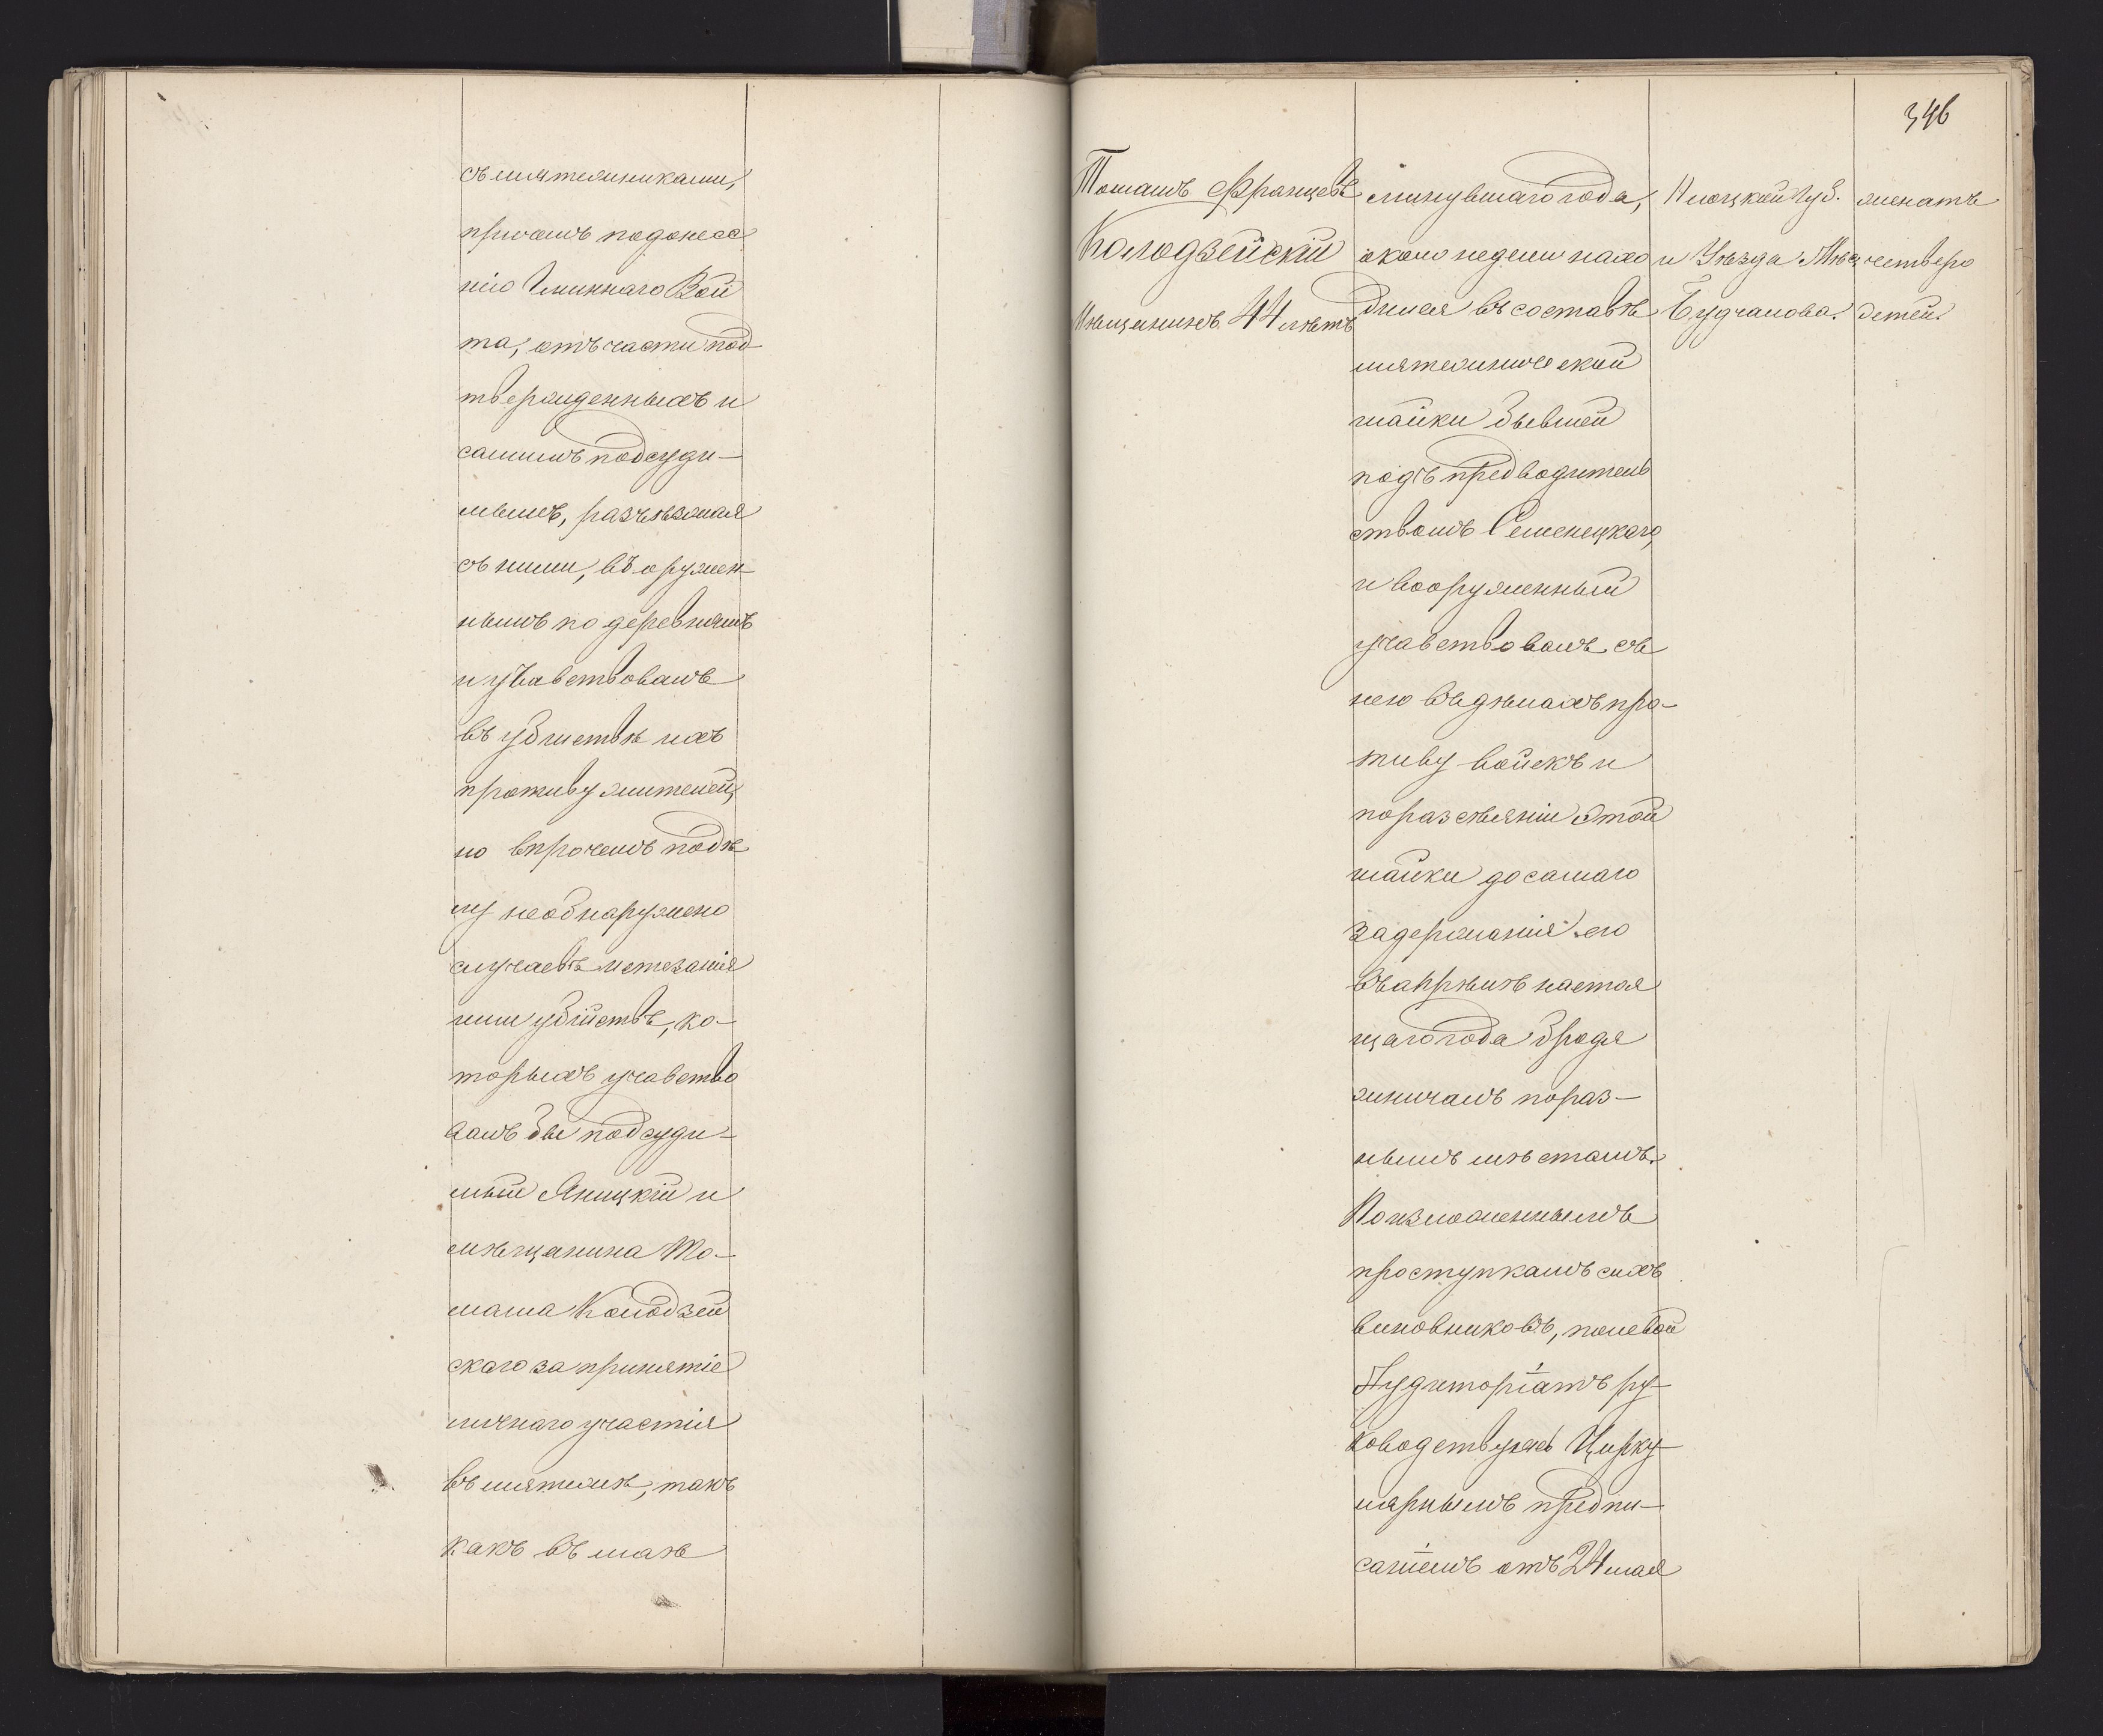 съ мятежниками,
причемъ по донесе
нію Гминнаго Вой
та, отъ части под-
твержденныхъ и
самимъ подсуди-
мымъ, разъѣзжая
съ ними, въоружен-
нымъ по деревнямъ
и учавствовалъ
въ убійствѣ ихъ
противу жителей,
но впрочемъ по дѣ
лу необнаружено
случаевъ истезанія
или убійствъ, ко-
торыхъ учавство
валъ бы подсуди-
мый Яницкій и
мѣщанина То-
маша Колодзей
скаго за принятіе
личнаго участія
въ мятежѣ, такъ
какъ въ маѣ
346
Томашъ Францевъ
Колодзейскій
Мѣщанинъ 44 лѣтъ
минувшаго года,
около недели нахо
дился въ составѣ
мятежнической
шайки бывшей
подъ предводитель
ствомъ Семенецкаго,
и вооруженный
учавствовалъ съ
нею въ дѣлахъ про-
тиву войскъ и
по разсѣяніи этой
шайки до самаго
задержанія его
въ апрѣлѣ настоя
щаго года бродя
жничалъ по раз-
нымъ мѣстамъ.
По изложеннымъ
проступкамъ сихъ
виновниковъ, полевой
Аудиторіатъ ру-
ководствуясь Цирку-
лярнымъ предпи-
саніемъ отъ 24 мая
Плоцкой Губ.
и Уѣзда Мѣс.
женатъ
четверо
детей.